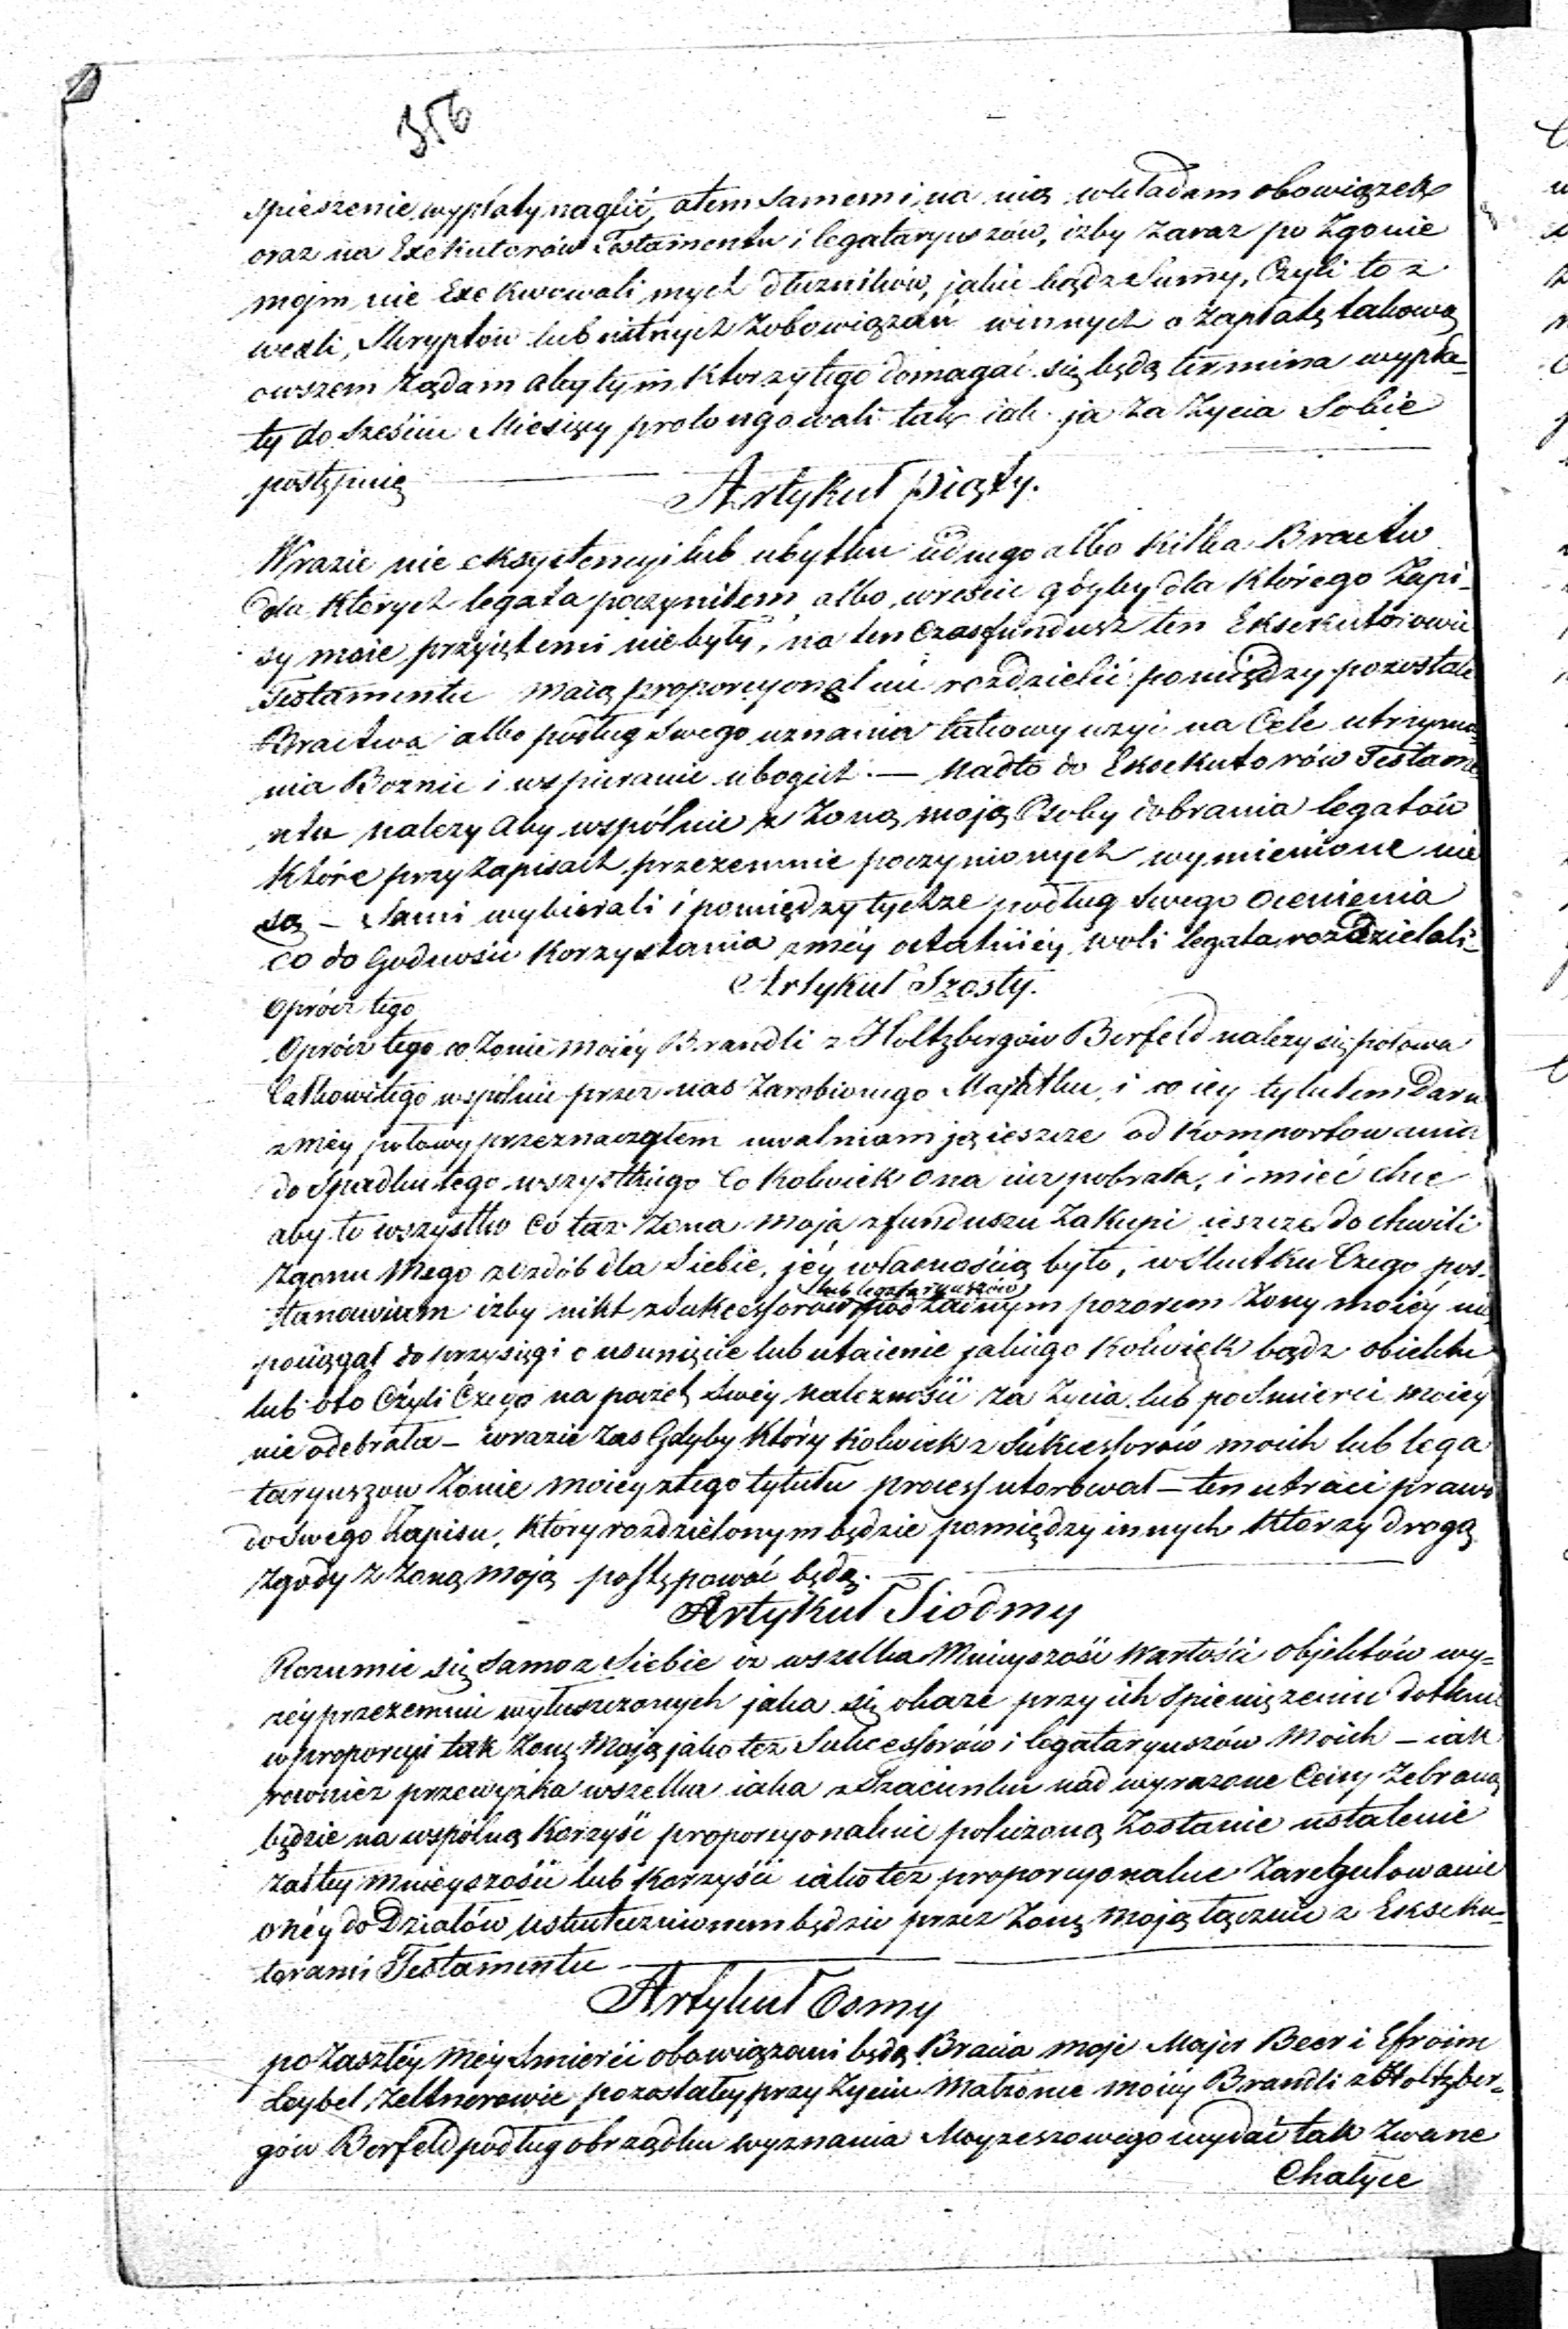 356
spieszenie wypłaty naglić, atem samem i na nią wkładam obowiązek
oraz na Exekutorów Testamentu i legataryuszów, izby zaraz po Zgonie
mojm nie Exekwowali mych dłuzników, jakie bądz Sumy, Czyli to z
wexli, Skryptów lub ustnych Zobowiązań winnych o Zapłatę takową
owszem Ządam aby tym którzy tego domagać się będą termina wypła-
ty do sześciu Miesięcy prolongowali tak iak ja Za Zycia Sobie
postępuię
Artykuł piąty.
W razie nie eksystencyi lub ubytku iednego albo kilka Bractw
dla których legata poczyniłem albo wreście gdyby dla którego Zapi-
sy moie przyiętemi nie były, na ten czas fundusz ten Eksekutorowie
Testamentu maią proporcyonalnie rozdzielić pomiędzy pozostałe
Bractwa albo podług swego uznania takowy uzyć na Cele utrzyma
nia Boznic i wspieranie ubogich. — Nadto do Eksekutorów Testame
ntu nalezy aby wspólnie z Zoną moją Osoby dobrania legatów
które przy Zapisach przezemnie poczynionych wymienione nie
są – Sami wybierali i pomiędzy tychze podług swego ocenienia
co do Godności korzystania z méy ostatniéy woli legata rozdzielali –
Artykuł Szosty.
Oprócz tego
Oprócz tego co Zonie moiéy Brandli z Holtzbergów Berfeld nalezy się połowa
Całkowitego wspólnie przez nas Zarobionego Majątku, i co iey tytułem Daru
z méy połowy przeznaczyłem uwalniam ją ieszcze od komportowania
do Spadku tego wszystkiego Co kolwiek ona iuz pobrała, i mieć chce
aby to wszystko co taz Zona moja z funduszu Zakupi ieszcze do chwili
Zgonu Mego ozdób dla Siebie, jéy własnością było, w Skutku Czego pos-
tanawiam izby nikt z Sukcessorów lub legataryuszów pod Zadnym pozorem Zony moiéy nie
pociągał do przysięgi o usunięcie lub utaienie jakiego kolwiek bądz obiektu
lub oto Czyli Czego na poczet Swéy nalezności za Zycia lub po Smierci moiéy
nie odebrała – w razie zas Gdyby który kolwiek z Sukcessorów moich lub lega
taryuszow Zonie moiey z tego tytułu process utorował – ten utraci prawo
do Swego Zapisu, który rozdzielonym będzie pomiędzy innych którzy drogą
Zgody z Zoną moją postępować będą. —
Artykuł Siodmy
Rozumie się samo z Siebie iz wszelka Mnieyszość wartości objektów wy-
zéy przezemnie wyłuszczonych jaka się okaze przy ich spienięzeniu dotknie
w proporcyi tak Zonę Moją jako tez Sukcessorów i legataryuszów Moich – iak
równiez przewyzka wszelka iaka z Szacunku nad wyrazone Ceny Zebraną
będzie na wspólną korzyść proporcyonalnie policzoną Zostanie ustalenie
zaś téy mnieyszości lub korzyści iako tez proporcyonalne Zaregulowanie
onéy do Działów uskutecznionem będzie przez Zonę moją łącznie z Ekseku-
torami Testamentu —
Artykuł Osmy
po Zaszłéy méy Smierci obowiązani będą Bracia moje Majer Beer i Efroim
Leybel Zeltnerowie pozostałey przy Zyciu Małzonce moiéy Brandli z Holtzber-
gów Berfeld podług obrządku wyznania Moyzeszowego wydać tak zwane
Chalyce